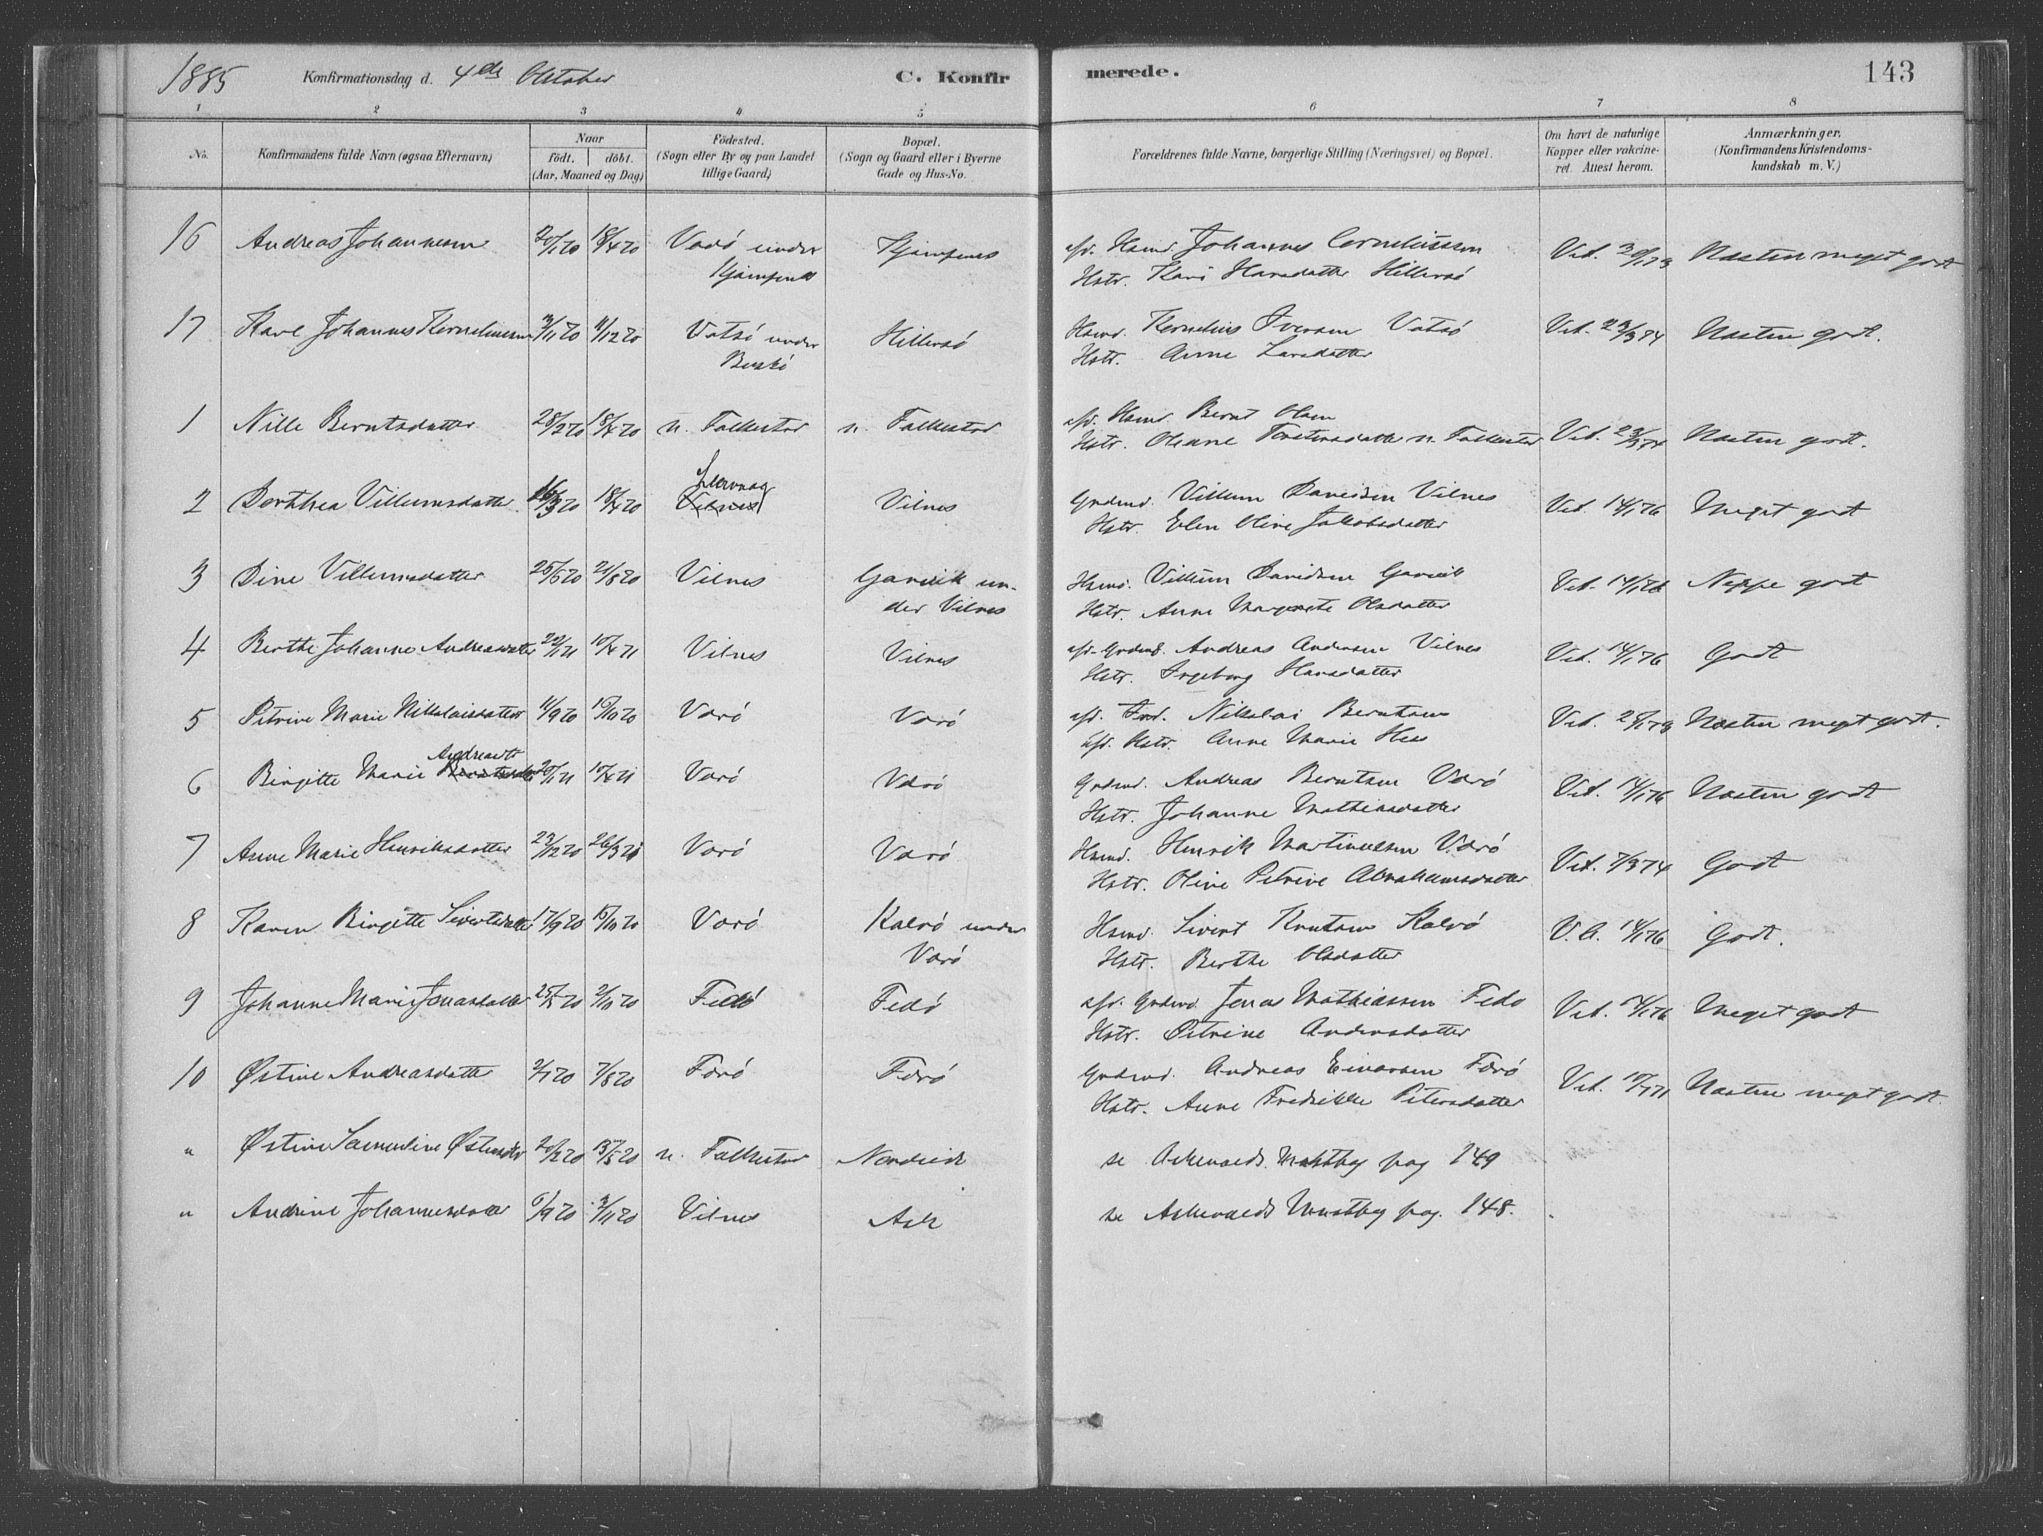 1885 Konfirmationsdag d. 4de Oktober C. Konfirmerede. 143
1 2 3 4 5 6 7 8
No. Konfirmandens fulde Navn (ogsaa Efternavn) Naar födt. döbt. (Aar, Maaned og Dag) Födested. (Sogn eller By og paa Landet tillige Gaard) Bopæl. (Sogn og Gaard eller i Byerne Gade og Hus-No. Forældrenes fulde Navne, borgerlige Stilling (Næringsvei) og Bopæl. Om havt de naturlige Kopper eller vakcineret. Attest herom. Anmærkninger. (Konfirmandens Kristendomskundskab m. V.)
16 Andreas Johannesen 20/1 70 18/4 70 Vadö under Kjempenes Kjempenes afd. Hsmd. Johannes Corneliussen Vid. Næsten meget godt
Hstr. Kari Hansdatter Hillersö
17 Karl Johannes Korneliussen 3/11 70 4/12 70 Vatsö under Buskö Hillersö Hsmd. Kornelius Iversen Vatsö Vid. 23/3 74 Næsten godt.
Hstr. Anne Larsdatter
1 Nille Berntsdatter 28/2 70 18/4 70 n. Falkestad n. Falkestad afd. Hsmd. Bernt Olsen Vid. 23/3 74 Næsten godt.
Hstr. Oliane Torstensdatter n. Falkestad
2 Dorthea Villumsdatter 16/3 70 18/4 70 Lervaag Vilnes Vilnes Grdmd. Villum Davidsen Vilnes Vid. 14/1 76 Meget godt
Hstr. Elen Oline Jakobsdatter
3 Dine Villumsdatter 25/5 70 21/8 70 Vilnes Garvik under Vilnes Hsmd. Villum Davidsen Garvik Vid. 14/1 76 Neppe godt
Hstr. Anne Margrete Olsdatter
4 Berthe Johanne Andreasdatter 22/1 71 10/4 71 Vilnes Vilnes afd. Grdmd. Andreas Andersen Vilnes Vid. 14/1 76 Godt
Hstr. Ingeborg Hansdatter
5 Petrine Marie Nikolaisdatter 11/9 70 15/10 70 Værö Værö afd. Ind. Nikolai Berntsen Vid. Næsten meget godt.
afd. Hstr. Anne Marie Hess
6 Birgitte Marie Andreasdtr 20/1 71 10/4 71 Værö Værö Grdmd. Andreas Berntsen Værö Vid. 14/1 76 Næsten godt
Hstr. Johanne Mathiasdatter
7 Anne Marie Henriksdatter 23/12 70 26/3 71 Værö Værö Hsmd. Henrik Martinussen Værö Vid. 7/3 74 Godt
Hstr. Oline Petrine Abrahamsdatter
8 Karen Birgitte Sivertsdatter 17/9 70 15/10 70 Værö Kalvö under Værö Hsmd. Sivert Knutsen Kalvö V.A. 14/1 76 Godt.
Hstr. Berthe Olsdatter
9 Johanne Marie Jonasdatter 25/8 70 2/11 70 Fedö Fedö afd. Grdmd. Jonas Mathiassen Fedö Vid. 14/1 76 Meget godt
Hstr. Petrine Andersdatter
10 Østine Andreasdatter 2/7 70 7/8 70 Færö Færö Grdmd. Andreas Einarsen Færö Vid. Næsten meget godt.
Hstr. Anne Fredrikke Petersdatter
" Østine Samueline Østensdtr 20/2 70 13/5 70 n. Falkestad Nordeide se Askevolds Ministbog pag 149
" Andrine Johannesdatter 6/9 70 3/11 70 Vilnes Ask se Askevolds Ministbog pag. 148.